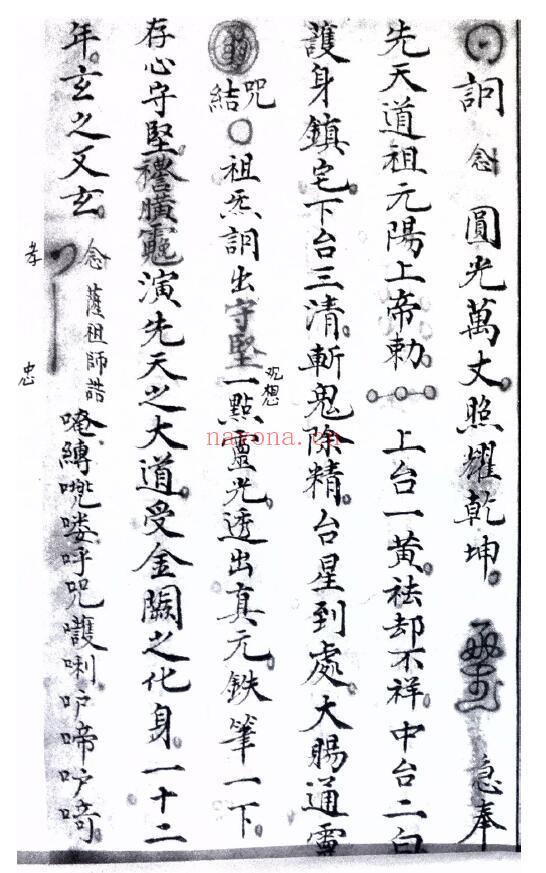 訶 念 圓光萬丈照耀乾坤 急奉
先天道祖元陽上帝勅 上台一黃袪却不祥中台二白
護身鎮宅下台三清斬鬼除精台星到處大賜通靈
咒結 祖炁訶出守堅一點靈光透出真元鉄筆一下
观想
存心守堅 演先天之大道受金闕之化身一十二
年玄之又玄 念薩祖師誥 唵 呼咒 唎 啼
孝
忠
nayona.cn